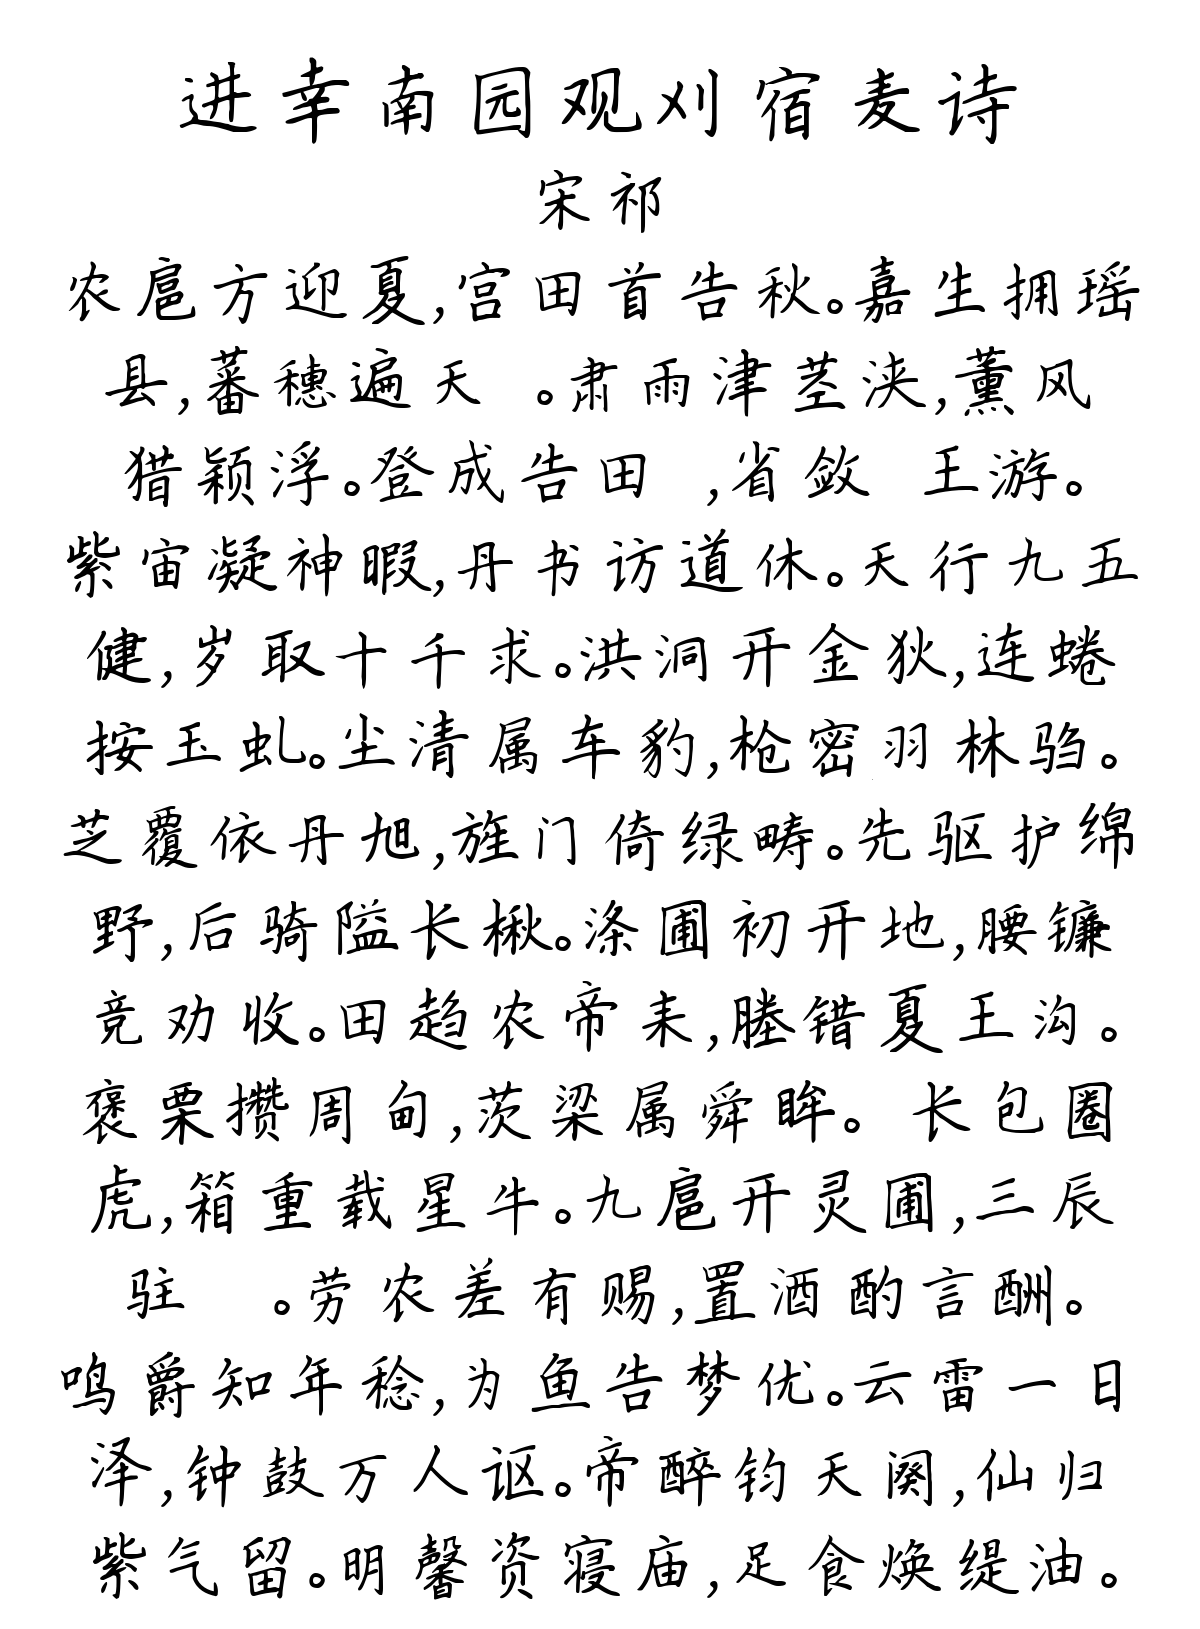 进幸南园观刈宿麦诗
宋祁
农扈方迎夏,宫田首告秋。嘉生拥瑶
县,蕃穗遍天 。肃雨津茎浃,薰风
猎颖浮。登成告田 ,省敛 王游。
紫宙凝神暇,丹书访道休。天行九五
健,岁取十千求。洪洞开金狄,连蜷
按玉虬。尘清属车豹,枪密羽林驺。
芝覆依丹旭,旌门倚绿畴。先驱护绵
野,后骑隘长楸。涤圃初开地,腰镰
竞劝收。田趋农帝耒,塍错夏王沟。
褎栗攒周甸,茨梁属舜眸。 长包圈
虎,箱重载星牛。九扈开灵圃,三辰
驻 。劳农差有赐,置酒酌言酬。
鸣爵知年稔,为鱼告梦优。云雷一日
泽,钟鼓万人讴。帝醉钧天阕,仙归
紫气留。明馨资寝庙,足食焕缇油。